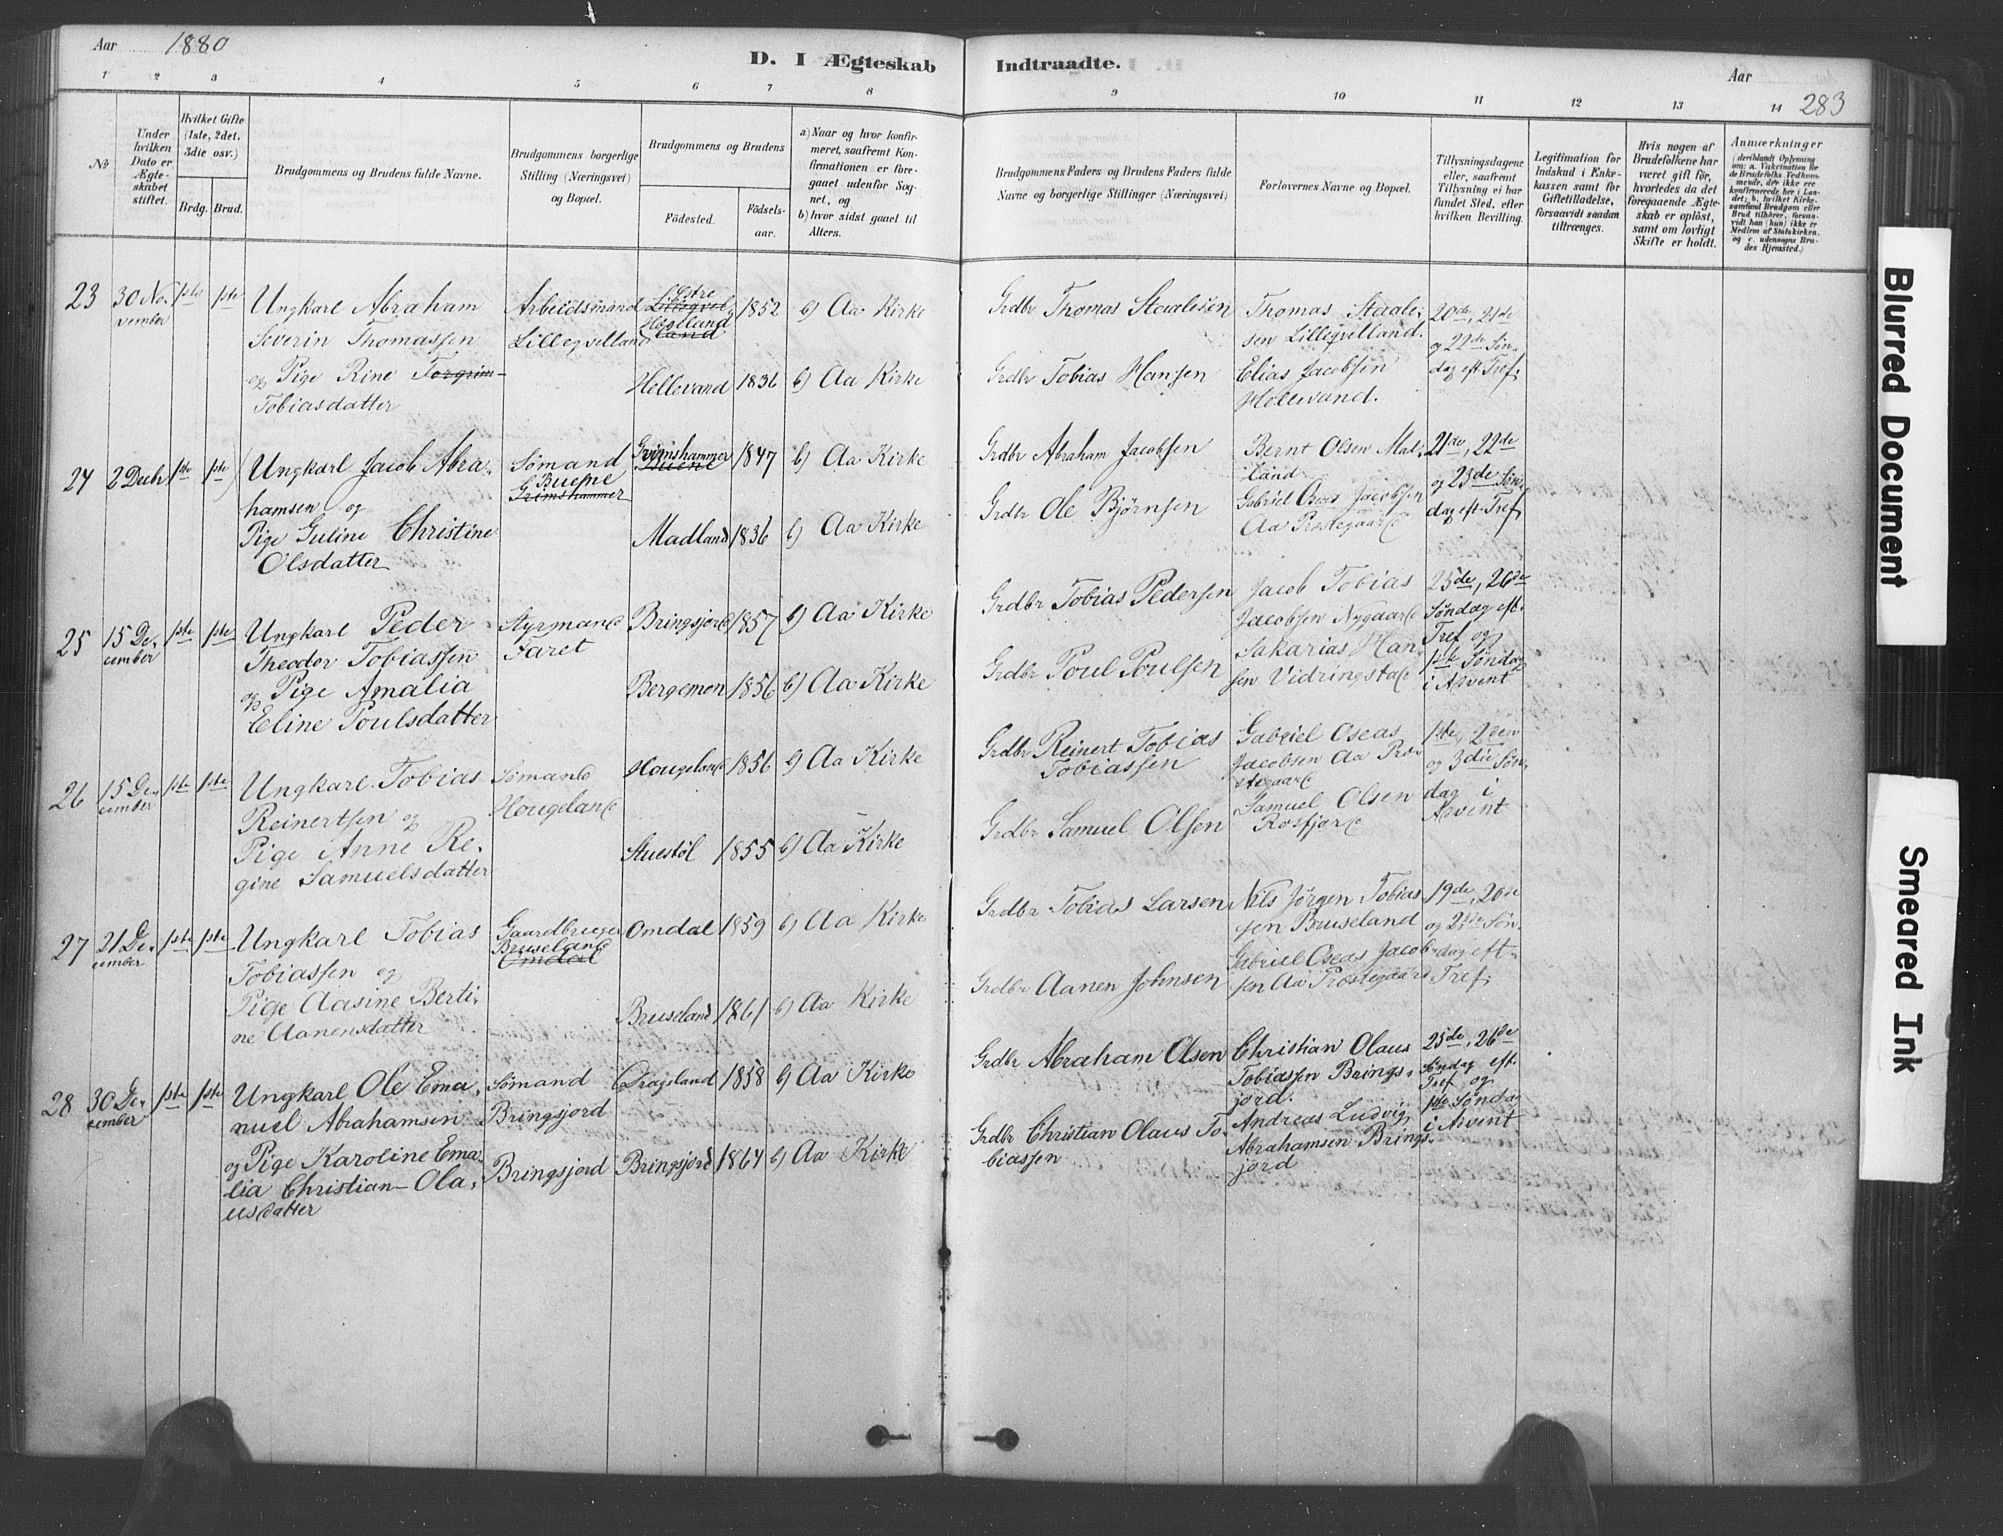 Aar 1880
D. I Ægteskab Indtraadte.
Aar
283
1 2 3 4 5 6 7 8 9 10 11 12 13 14
No
Under hvilken Dato er Ægteskabet stiftet.
Hvilket Gifte (1ste, 2det, 3die osv.)
Brdg. Brud.
Brudgommens og Brudens fulde Navne.
Brudgommens borgerlige Stilling (Næringsvei) og Bopæl.
Brudgommens og Brudens
Födested. Födselsaar.
a) Naar og hvor konfirmeret, saafremt Konfirmationen er foregaaet udenfor Sognet, og
b) hvor sidst gaaet til Alters.
Brudgommens Faders og Brudens Faders fulde Navne og borgerlige Stillinger (Næringsvei)
Forlovernes Navne og Bopæl.
Tillysningsdagene eller, saafremt Tillysning ei har fundet Sted, efter hvilken Bevilling.
Legitimation for Indskud i Enkekassen samt for Giftetilladelse, forsaavidt saadan tiltrænges.
Hvis nogen af Brudefolkene har været gift för, hvorledes da det foregaaende Ægteskab er oplöst, samt om lovligt Skifte er holdt.
Anmærkninger
23
30 November
1ste 1ste
Ungkarl Abraham
Severin Thomassen
og Pige Rine Torgrim-
Tobiasdatter
Arbeidsmand
Lillegvelland
Østre
Høgelland
1852
b) Aa Kirke
Hellevand 1836 b) Aa Kirke
Grdbr Thomas Staalesen
Grdbr Tobias Hansen
Thomas Staale-
sen Lillegvelland.
Elias Jacobsen
Hellevand.
20de, 21de
og 22de Søn-
dag eft Tref.
24
2 Decb
1ste 1ste
Ungkarl Jacob Abra-
hamsen og
Pige Guline Christine
Olsdatter
Sømand
Buene
Grimshammer
Grimshammer
Buene
1847 b) Aa Kirke
Madland 1836 b) Aa Kirke
Grdbr Abraham Jacobsen
Grdbr Ole Bjørnsen
Bernt Olsen Mad-
land
Gabriel Oseas Jacobsen
Aa Prostegaard
21de, 22de
og 23de Søn-
dag eft Tref
25
15 December
1ste 1ste
Ungkarl Peder
Theodor Tobiassen
og Pige Amalia
Eline Poulsdatter
Styrmand
Faret
Bringsjord 1857 b) Aa Kirke
Bergemon 1856 b) Aa Kirke
Grdbr Tobias Pedersen
Grdbr Poul Poulsen
Jacob Tobias
Jacobsen Nygaard
Sakarias Han-
sen Vidringstad
25de, 26de
Søndag eft.
Tref og
1ste Søndag
i Advent
26
15 December
1ste 1ste
Ungkarl Tobias
Reinertsen og
Pige Anne Re-
gine Samuelsdatter
Sømand
Hougeland
Hougeland 1856 b) Aa Kirke
Stuestøl 1855 b) Aa Kirke
Grdbr Reinert Tobias
Tobiassen
Grdbr Samuel Olsen
Gabriel Oseas
Jacobsen Aa Pro-
stegaard
Samuel Olsen
Rosfjord
1ste, 2den
og 3die Søn-
dag i
Advent
27
21 December
1ste 1ste
Ungkarl Tobias
Tobiassen og
Pige Aasine Berti-
ne Aanensdatter
Gaardbruger
Bruseland
Omdal
Omdal 1859 b) Aa Kirke
Bruseland 1861 b) Aa Kirke
Grdbr Tobias Larsen
Grdbr Aanen Johnsen
Nils Jørgen Tobias-
sen Bruseland
Gabriel Oseas Jacob-
sen Aa Prostegaard
19de, 20de
og 21de Søn-
dag eft.
Tref.
28
30 December
1ste 1ste
Ungkarl Ole Ema-
nuel Abrahamsen
og Pige Karoline Ema-
lia Christian-Ola-
usdatter
Sømand
Bringsjord
Bringsjord
Dragsland 1858 b) Aa Kirke
Bringsjord 1864 b) Aa Kirke
Grdbr Abraham Olsen
Grdbr Christian Olaus To-
biassen
Christian Olaus
Tobiassen Brings-
jord.
Andreas Ludvig
Abrahamsen Brings-
jord
25de, 26de
Søndag eft.
Tref og
1ste Søndag
i Advent
Blurred Document
Smeared Ink